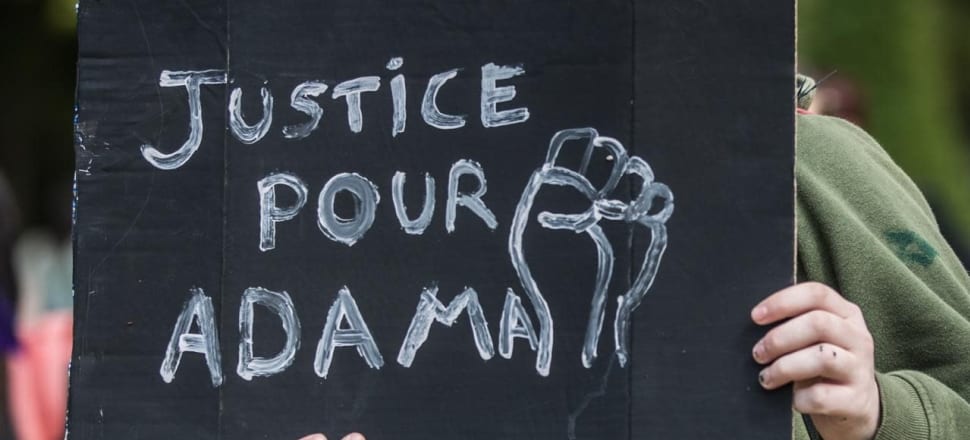 JUSTICE
POUR
ADAMA